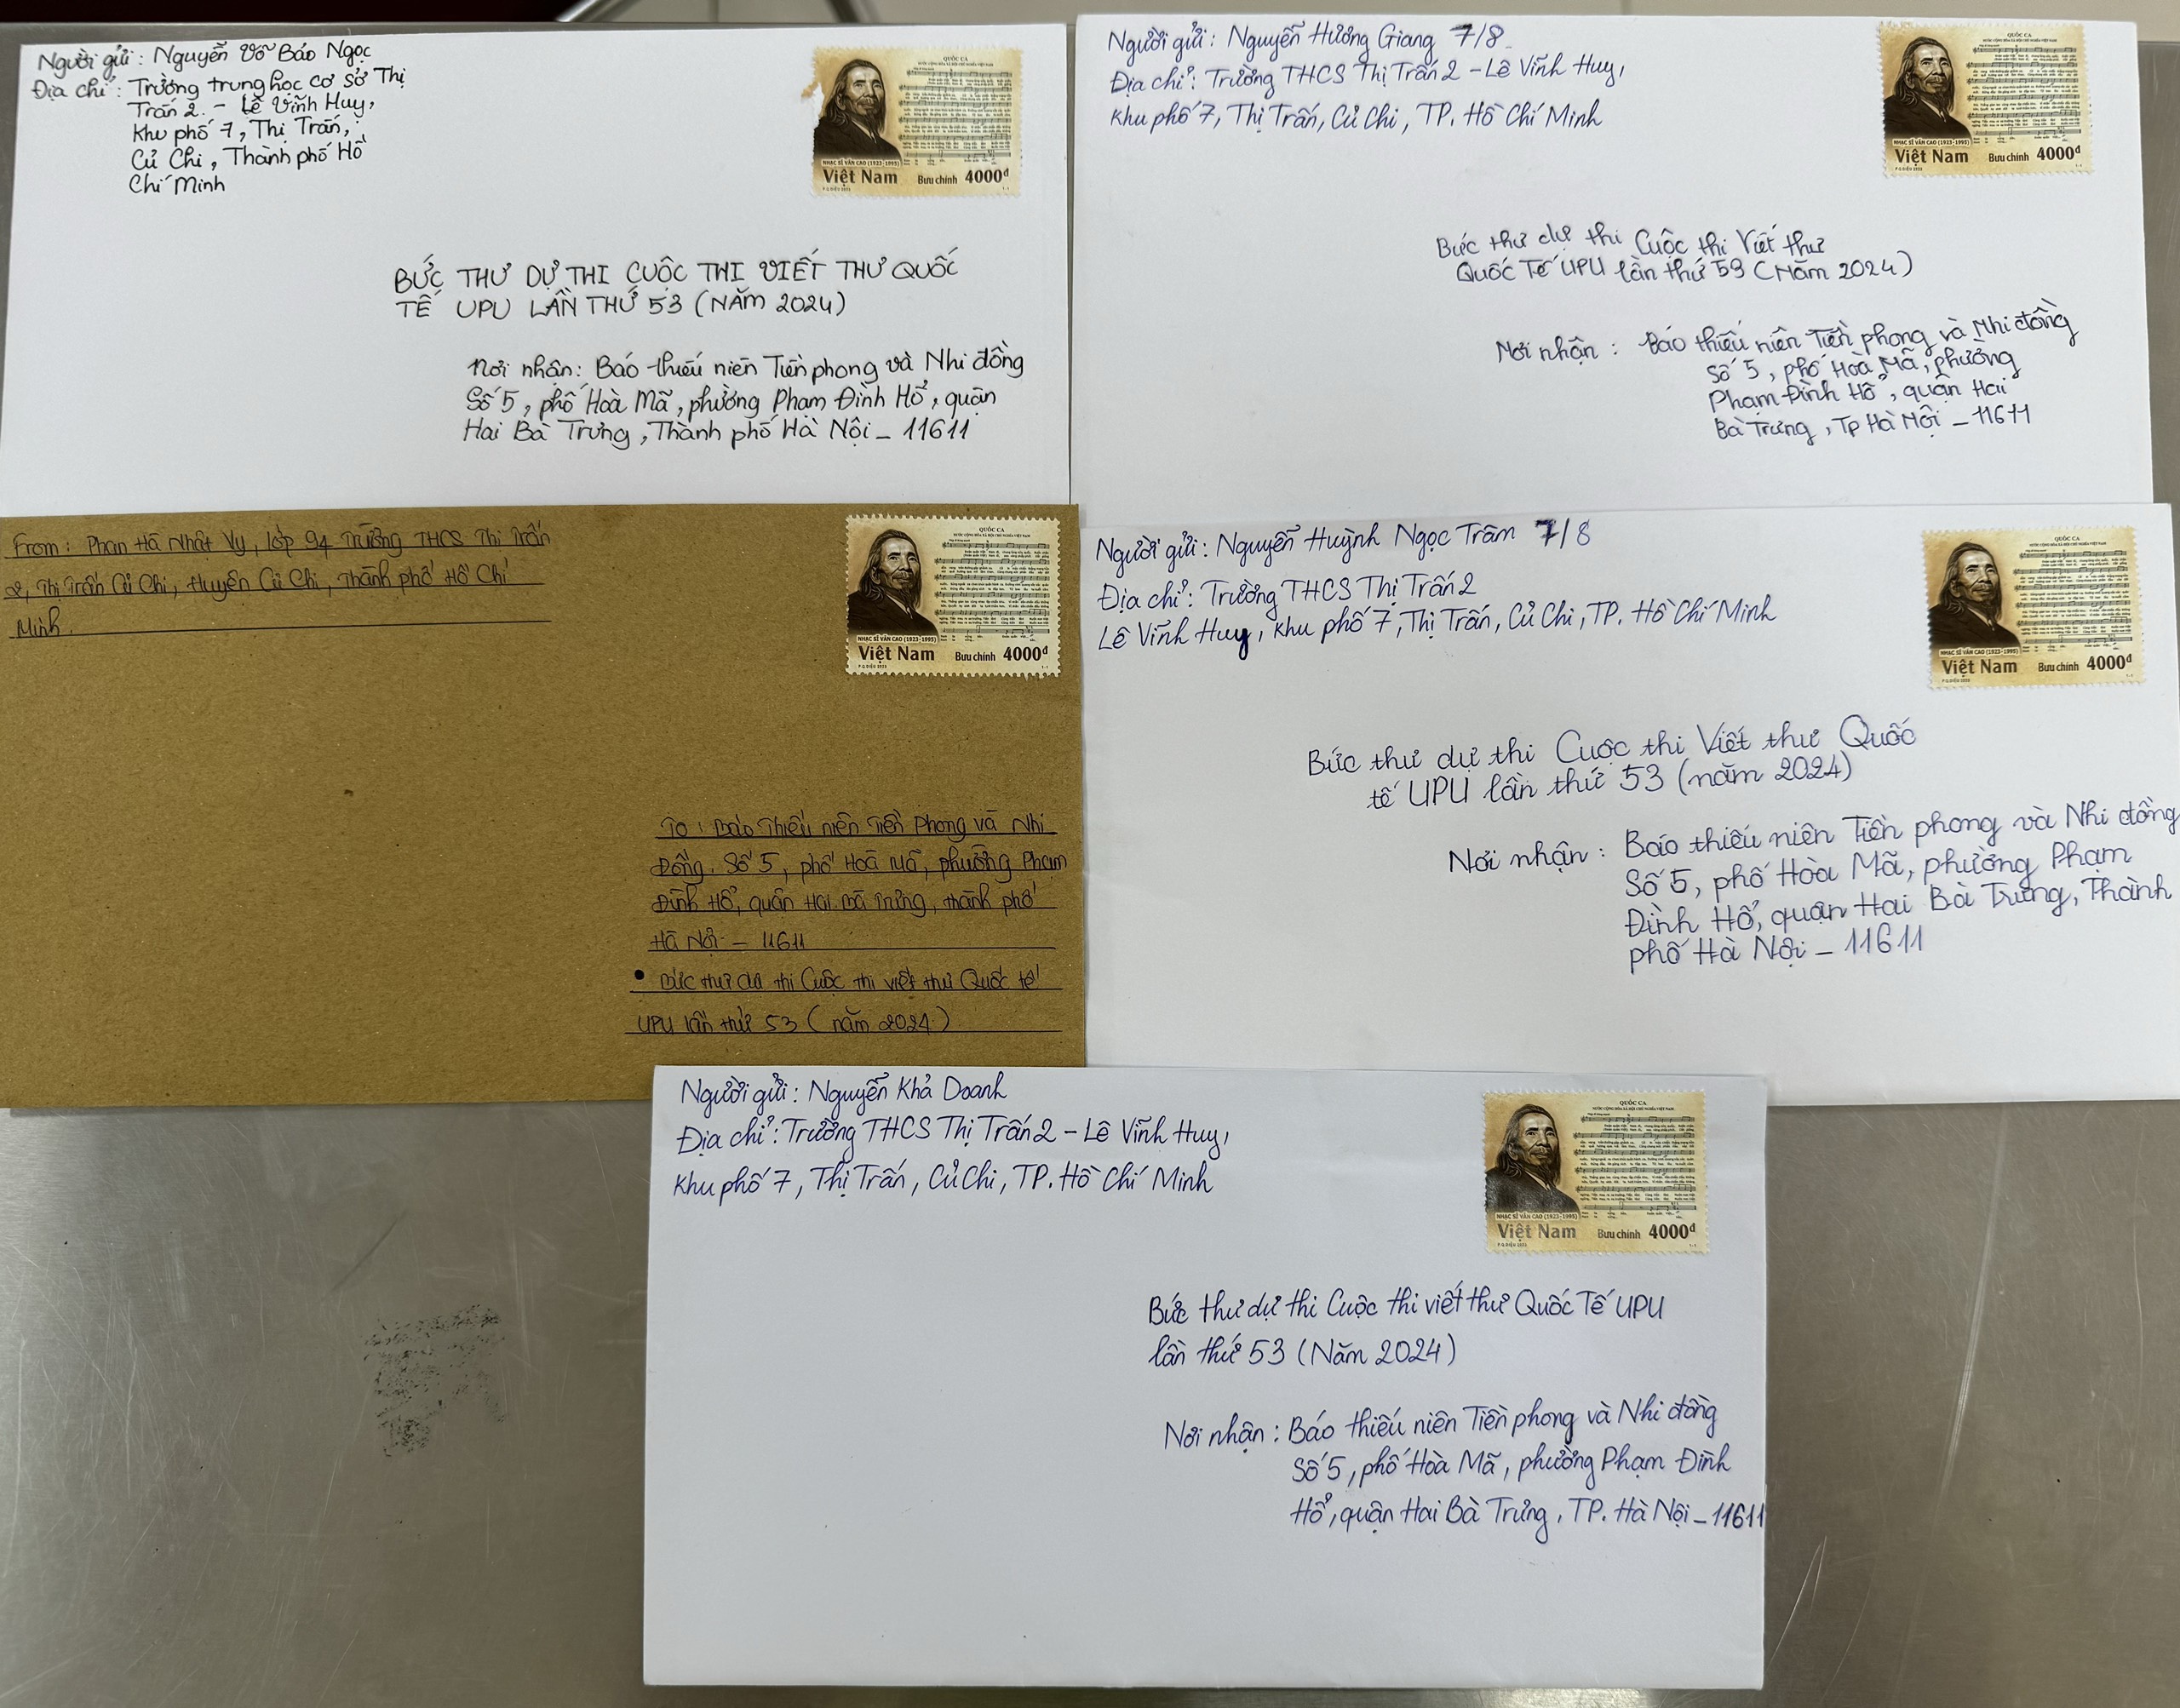 Người gửi: Nguyễn Võ Bảo Ngọc
Địa chỉ: Trường trung học cơ sở Thị
Trấn 2. - Lê Vĩnh Huy,
Khu phố 7, Thị Trấn,
Củ Chi, Thành phố Hồ
Chí Minh
QUỐC CA
NHẠC SĨ VĂN CAO (1923-1995)
Việt Nam Bưu chính 4000đ
BỨC THƯ DỰ THI CUỘC THI VIẾT THƯ QUỐC
TẾ UPU LẦN THỨ 53 (NĂM 2024)
Nơi nhận: Báo thiếu niên Tiền phong và Nhi đồng
Số 5, phố Hoà Mã, phường Phạm Đình Hổ, quận
Hai Bà Trưng, Thành phố Hà Nội - 11611
Người gửi: Nguyễn Hương Giang 7/8
Địa chỉ: Trường THCS Thị Trấn 2 - Lê Vĩnh Huy,
Khu phố 7, Thị Trấn, Củ Chi, TP. Hồ Chí Minh
QUỐC CA
NHẠC SĨ VĂN CAO (1923-1995)
Việt Nam Bưu chính 4000đ
Bức thư dự thi Cuộc thi Viết thư
Quốc Tế UPU lần thứ 53 (Năm 2024)
Nơi nhận: Báo thiếu niên Tiền phong và Nhi đồng
Số 5, phố Hoà Mã, phường
Phạm Đình Hổ, quận Hai
Bà Trưng, Tp Hà Nội - 11611
From: Phan Hà Nhật Vy, lớp 94 Trường THCS Thị Trấn
2, Thị Trấn Củ Chi, Huyện Củ Chi, Thành phố Hồ Chí
Minh.
QUỐC CA
NHẠC SĨ VĂN CAO (1923-1995)
Việt Nam Bưu chính 4000đ
To: Báo Thiếu niên Tiền Phong và Nhi
Đồng. Số 5, phố Hoà Mã, phường Phạm
Đình Hổ, quận Hai Bà Trưng, thành phố
Hà Nội - 11611
• Bức thư dự thi Cuộc thi viết thư Quốc tế
UPU lần thứ 53 (năm 2024)
Người gửi: Nguyễn Huỳnh Ngọc Trâm 7/8
Địa chỉ: Trường THCS Thị Trấn 2
Lê Vĩnh Huy, Khu phố 7, Thị Trấn, Củ Chi, TP. Hồ Chí Minh
QUỐC CA
NHẠC SĨ VĂN CAO (1923-1995)
Việt Nam Bưu chính 4000đ
Bức thư dự thi Cuộc thi Viết thư Quốc
tế UPU lần thứ 53 (năm 2024)
Nơi nhận: Báo thiếu niên Tiền phong và Nhi đồng
Số 5, phố Hòa Mã, phường Phạm
Đình Hổ, quận Hai Bà Trưng, Thành
phố Hà Nội - 11611
Người gửi: Nguyễn Khả Doanh
Địa chỉ: Trường THCS Thị Trấn 2 - Lê Vĩnh Huy,
Khu phố 7, Thị Trấn, Củ Chi, TP. Hồ Chí Minh
QUỐC CA
NƯỚC CỘNG HÒA XÃ HỘI CHỦ NGHĨA VIỆT NAM
NHẠC SĨ VĂN CAO (1923-1995)
Việt Nam Bưu chính 4000đ
Bức thư dự thi Cuộc thi viết thư Quốc Tế UPU
lần thứ 53 (Năm 2024)
Nơi nhận: Báo thiếu niên Tiền phong và Nhi đồng
Số 5, phố Hoà Mã, phường Phạm Đình
Hổ, quận Hai Bà Trưng, TP. Hà Nội - 11611